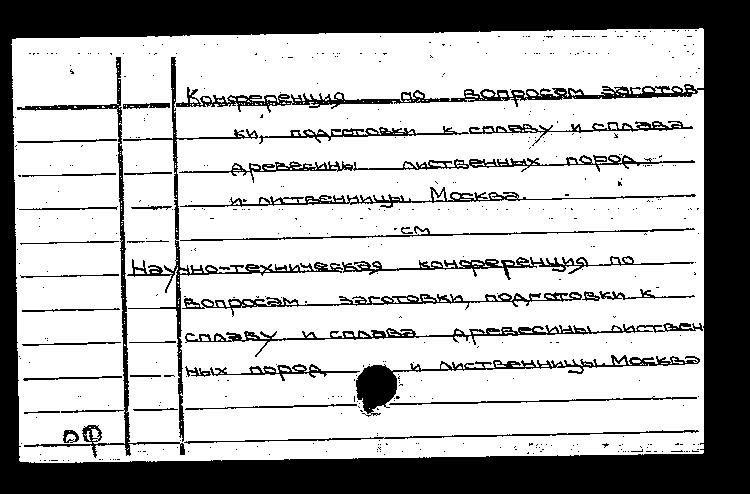 Конференция по вопросам заготов-
ки, подготовки к сплаву и сплава
древесины лиственных пород
и лиственницы. Москва.
см
Научно-техническая конференция по
вопросам заготовки, подготовки к
сплаву и сплава древесины листвен-
ных пород и лиственницы. Москва
оф